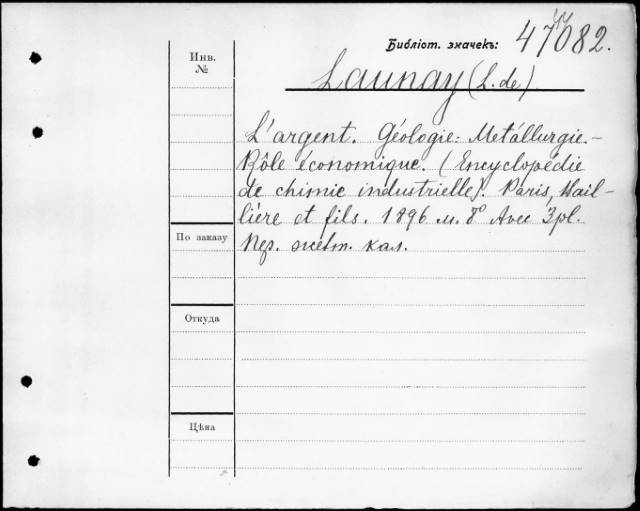 Библіот. значекъ: 47082.
Инв.
№
Launay (L. de).
L'argent. Géologie: Metállurgie.-
Rôle économique. (Encyclopédie
de chimie industrielle). Paris, Bail-
liére et fils. 1896 м. 8° Avec 3 pl.
Пер. желт. кал.
По заказу
Откуда
Цѣна